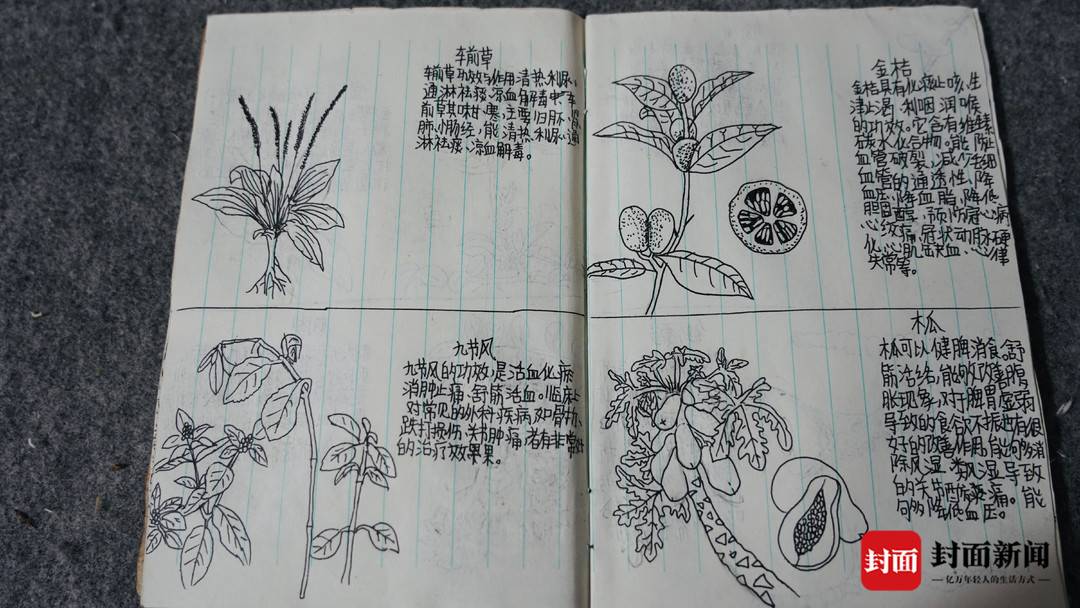 车前草
车前草功效与作用清热利尿、
通淋祛痰、凉血解毒中车
前草其味甘、寒、主要归肝、肾、
肺、小肠经，能清热利尿、通
淋祛痰、凉血解毒。
九节风
九节风的功效，是活血化瘀
消肿止痛、舒筋活血。临床上
对常见的外科疾病如骨折、
跌打损伤、关节肿痛者有非常好
的治疗效果果。
金桔
金桔具有化痰止咳、生
津止渴、利咽润喉
的功效。它含有维生素
碳水化合物。能防止
血管破裂，减少毛细
血管的通透性，降低
血
木瓜
木瓜可以健脾消食。舒
筋活络，能够改善腹
胀现象，对于脾胃虚弱
导到的食欲不振也有很
好的改善作用，能够消
除风湿，类风湿导致
的关节酸疼痛。能
够降低血压。
封面
封面新闻
亿万年轻人的生活方式